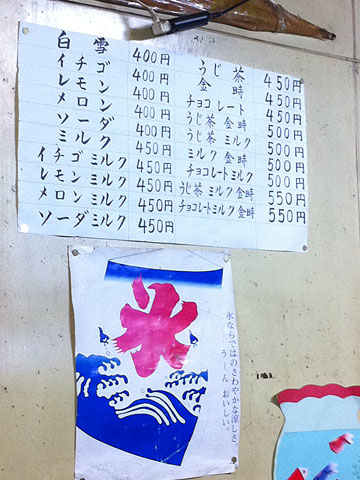 白雪 400円
イチゴ 400円
レモン 400円
メロン 400円
ソーダ 400円
ミルク 400円
イチゴミルク 450円
レモンミルク 450円
メロンミルク 450円
ソーダミルク 450円
うじ茶 450円
金時 450円
チョコレート 450円
うじ茶金時 500円
うじ茶ミルク 500円
ミルク金時 500円
チョコレートミルク 500円
うじ茶ミルク金時 550円
チョコレートミルク金時 550円
氷
氷ならではのさわやかな涼しさ。
うーん おいしい。